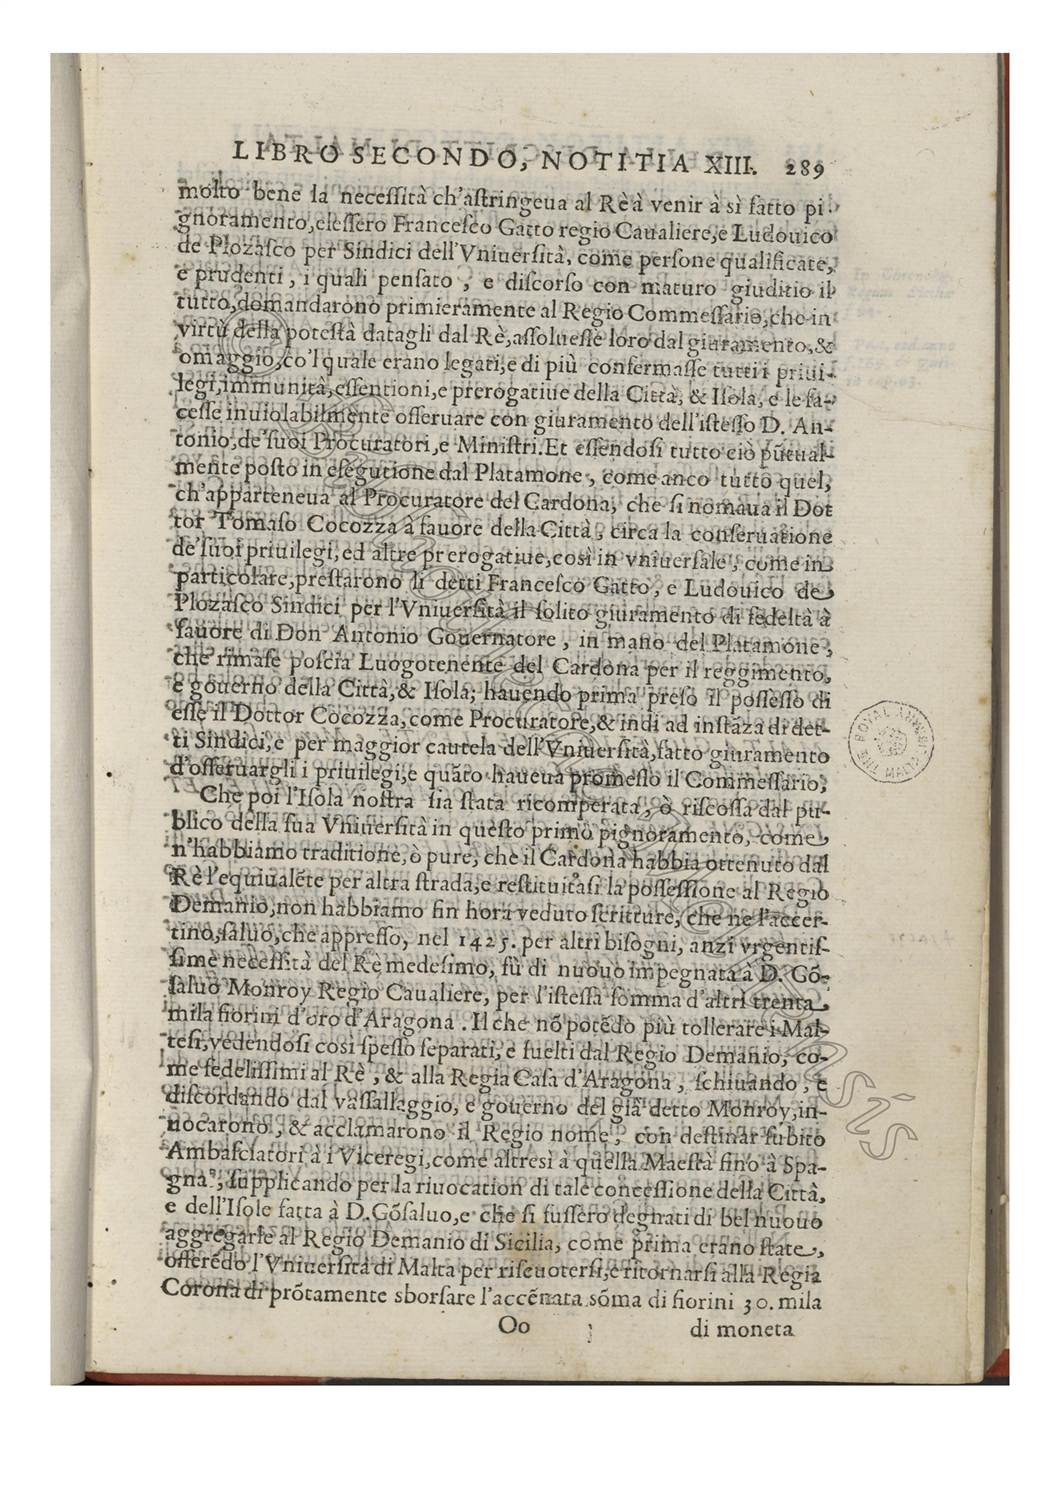 LIBRO SECONDO, NOTITIA XIII. 289
molto bene la neceſſità ch'aſtringeua al Rè à venir à sì fatto pi-
gnoramento, eleſſero Franceſco Gatto regio Caualiere, e Ludouico
de Plozaſco per Sindici dell'Vniuerſità, come perſone qualificate,
e prudenti, i quali penſato, e diſcorſo con maturo giuditio il
tutto, domandarono primieramente al Regio Commeſſario, che in
virtù della poteſtà datagli dal Rè, aſſolueſſe loro dal giuramento, &
omaggio, co'l quale erano legati; e di più confermaſſe tutti i priui-
legi, immunità, eſſentioni, e prerogatiue della Città, & Iſola, e le fa-
ceſſe inuiolabilmente oſſeruare con giuramento dell'iſteſſo D. An-
tonio, de'ſuoi Procuratori, e Miniſtri. Et eſſendoſi tutto ciò pūtual-
mente poſto in eſegutione dal Platamone, come anco tutto quel,
ch'apparteneua al Procuratore del Cardona, che ſi nomaua il Dot
tor Tomaſo Cocozza à fauore della Città, circa la conſeruatione
de'ſuoi priuilegi, ed altre prerogatiue, così in vniuerſale, come in
particolare, preſtarono li detti Franceſco Gatto, e Ludouico de
Plozaſco Sindici per l'Vniuerſità il ſolito giuramento di fedeltà à
fauore di Don Antonio Gouernatore, in mano del Platamone,
che rimaſe poſcia Luogotenente del Cardona per il reggimento,
e gouerno della Città, & Iſola; hauendo prima preſo il poſſeſſo di
eſſe il Dottor Cocozza, come Procuratore, & indi ad inſtāza di det-
ti Sindici, e per maggior cautela dell'Vniuerſità, fatto giuramento
d'oſſeruargli i priuilegi, e quāto haueua promeſſo il Commeſſario,
Che poi l'Iſola noſtra ſia ſtata ricomperata, ò riſcoſſa dal pu-
blico della ſua Vniuerſità in queſto primo pignoramento, come
n'habbiamo traditione, ò pure, che il Cardona habbia ottenuto dal
Rè l'equiualēte per altra ſtrada, e reſtituitaſi la poſſeſſione al Regio
Demanio, non habbiamo fin hora veduto ſcritture, che ne l'accer-
tino, ſaluo, che appreſſo, nel 1425. per altri biſogni, anzi vrgentiſ-
ſime neceſſità del Rè medeſimo, fù di nuouo impegnata à D. Gō-
ſaluo Monroy Regio Caualiere, per l'iſteſſa ſomma d'altri trenta
mila fiorini d'oro d'Aragona. Il che nō potēdo più tollerare i Mal-
teſi, vedendoſi così ſpeſſo ſeparati, e ſuelti dal Regio Demanio, co-
me fedeliſſimi al Rè, & alla Regia Caſa d'Aragona, ſchiuando, e
diſcordando dal vaſſallaggio, e gouerno del già detto Monroy, in-
uocarono, & acclamarono il Regio nome, con deſtinar ſubito
Ambaſciatori à i Viceregi, come altresì à quella Maeſtà fino à Spa-
gna, ſupplicando per la riuocation di tale conceſſione della Città,
e dell'Iſole fatta à D. Gōſaluo, e che ſi fuſſero degnati di bel nuouo
aggregarle al Regio Demanio di Sicilia, come prima erano ſtate,
offerēdo l'Vniuerſità di Malta per riſcuoterſi, e ritornarſi alla Regia
Corona di prōtamente sborſare l'accēnata sōma di fiorini 30. mila
Oo
di moneta